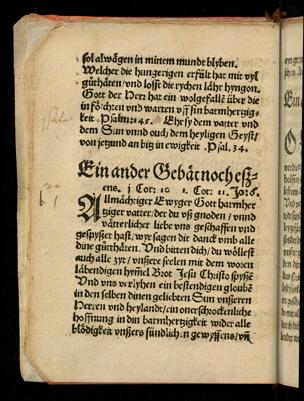 sol alwägen in minem mundt blyben.
Welcher die hungerigen erfült hat mit vyl
güthäten/ vnd losst die rychen lähr hyngon.
Gott der Herr hat ein wolgefallē über die
in förchten vnd warten vff sin barmhertzig-
keit. Psalm: 145. Ehr sy dem vatter vnd
dem Sun vnnd ouch dem heyligen Geyst/
von jetzund an biß in ewigkeit. Psal. 34.
Ein ander Gebät noch esz-
ens. j Cor: 10 1. Cor: 11. Jo: 6.
Allmächtiger Ewyger Gott barmher
tziger vatter/ der du vß gnoden/ vnnd
vätterlicher liebe vns geschaffen vnd
gespyßet hast/ wyr sagen dir danck vmb alle
dine güthäten. Vnd bitten dich/ du wöllest
auch alle zyt/ vnßere seelen mit dem woren
läbendigen hym̄el Brot Jesu Christo spysze
Vnd vns verlyhen ein bestendigen gloubē
in den selben dinen geliebten Sun vnßeren
Herren vnd heylande/ ein onerschrockenliche
hoffnung in din barmhertzigkeit wider alle
blödigkeit vnßers sündlichen gewyssens/ vn̄